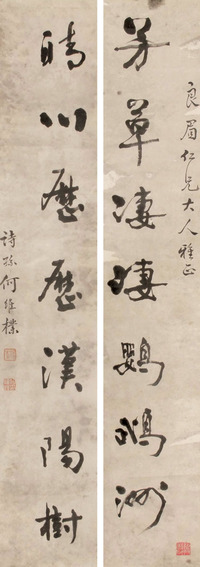 良眉仁兄大人雅正
芳草凄凄鸚鵡洲
晴川歷歷漢陽樹
詩孫何維樸